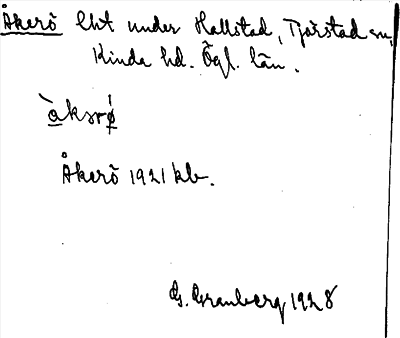 Åkerö lht under Hallstad, Tjärstad sn,
Kinda hd. Ögl. län.
àksrǿ
Åkerö 1921 kb.
G. Granberg 1928